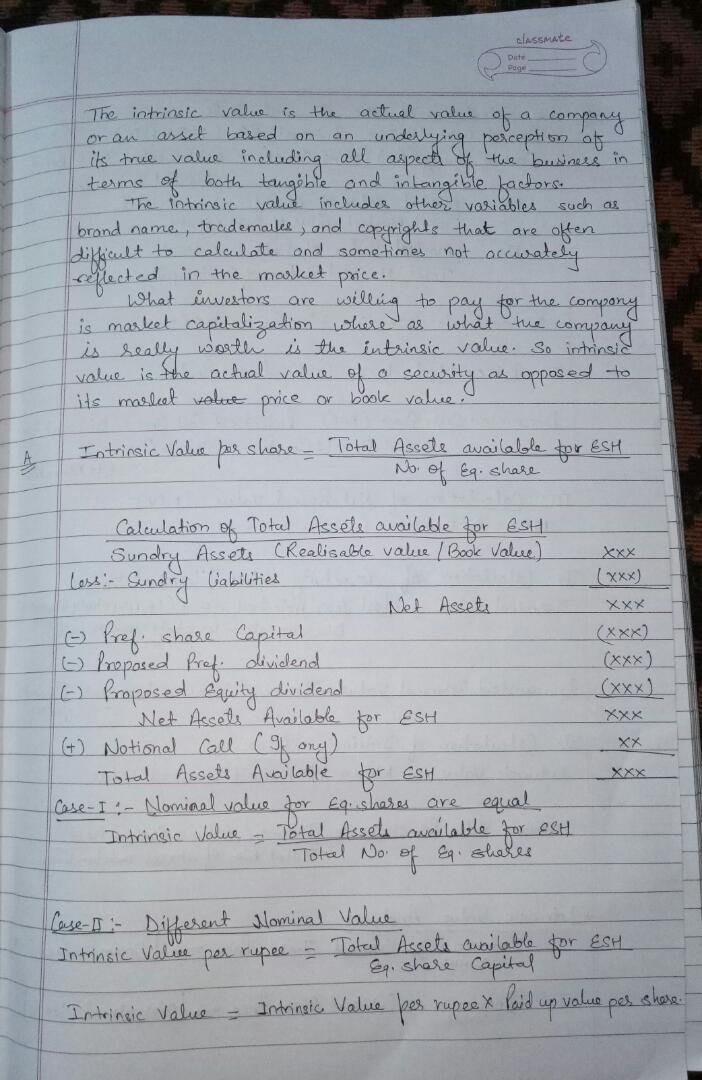 classmate
Date
Page
The intrinsic value is the actual value of a company
or an asset based on an underlying perception of
its true value including all aspects of the business in
terms of both tangible and intangible factors.
The intrinsic value includes other variables such as
brand name, trademarks, and copyrights that are often
difficult to calculate and sometimes not accurately
reflected in the market price.
What investors are willing to pay for the company
is market capitalization where as what the company
is really worth is the intrinsic value. So intrinsic
value is the actual value of a security as opposed to
its market value price or book value.
A Intrinsic Value per share = Total Assets available for ESH
No. of Eq. share
Calculation of Total Assets available for ESH
Sundry Assets (Realisable value / Book Value) xxx
Less:- Sundry liabilities (xxx)
Net Assets xxx
(-) Pref. share Capital (xxx)
(-) Proposed Pref. dividend (xxx)
(-) Proposed Equity dividend (xxx)
Net Assets Available for ESH xxx
(+) Notional Call (If any) xx
Total Assets Available for ESH xxx
Case-I :- Nominal value for Eq. shares are equal
Intrinsic Value = Total Assets available for ESH
Total No. of Eq. shares
Case-II :- Different Nominal Value
Intrinsic Value per rupee = Total Assets available for ESH
Eq. share Capital
Intrinsic Value = Intrinsic Value per rupee x Paid up value per share.